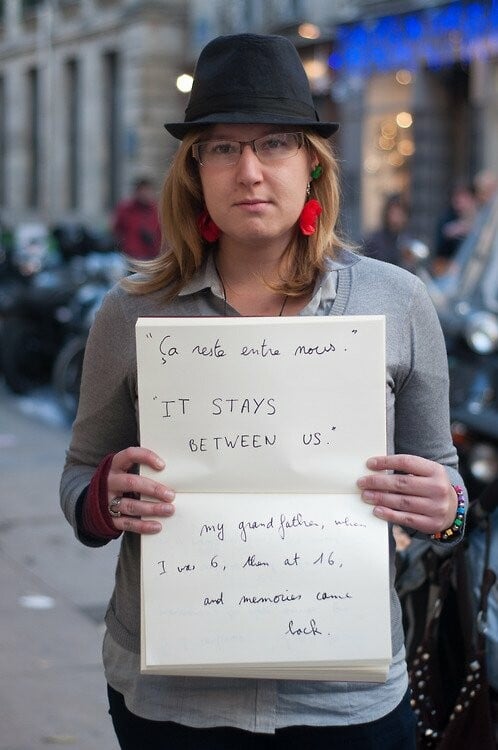 "Ça reste entre nous."
"IT STAYS
BETWEEN US."
my grandfather, when
I was 6, then at 16,
and memories came
back.